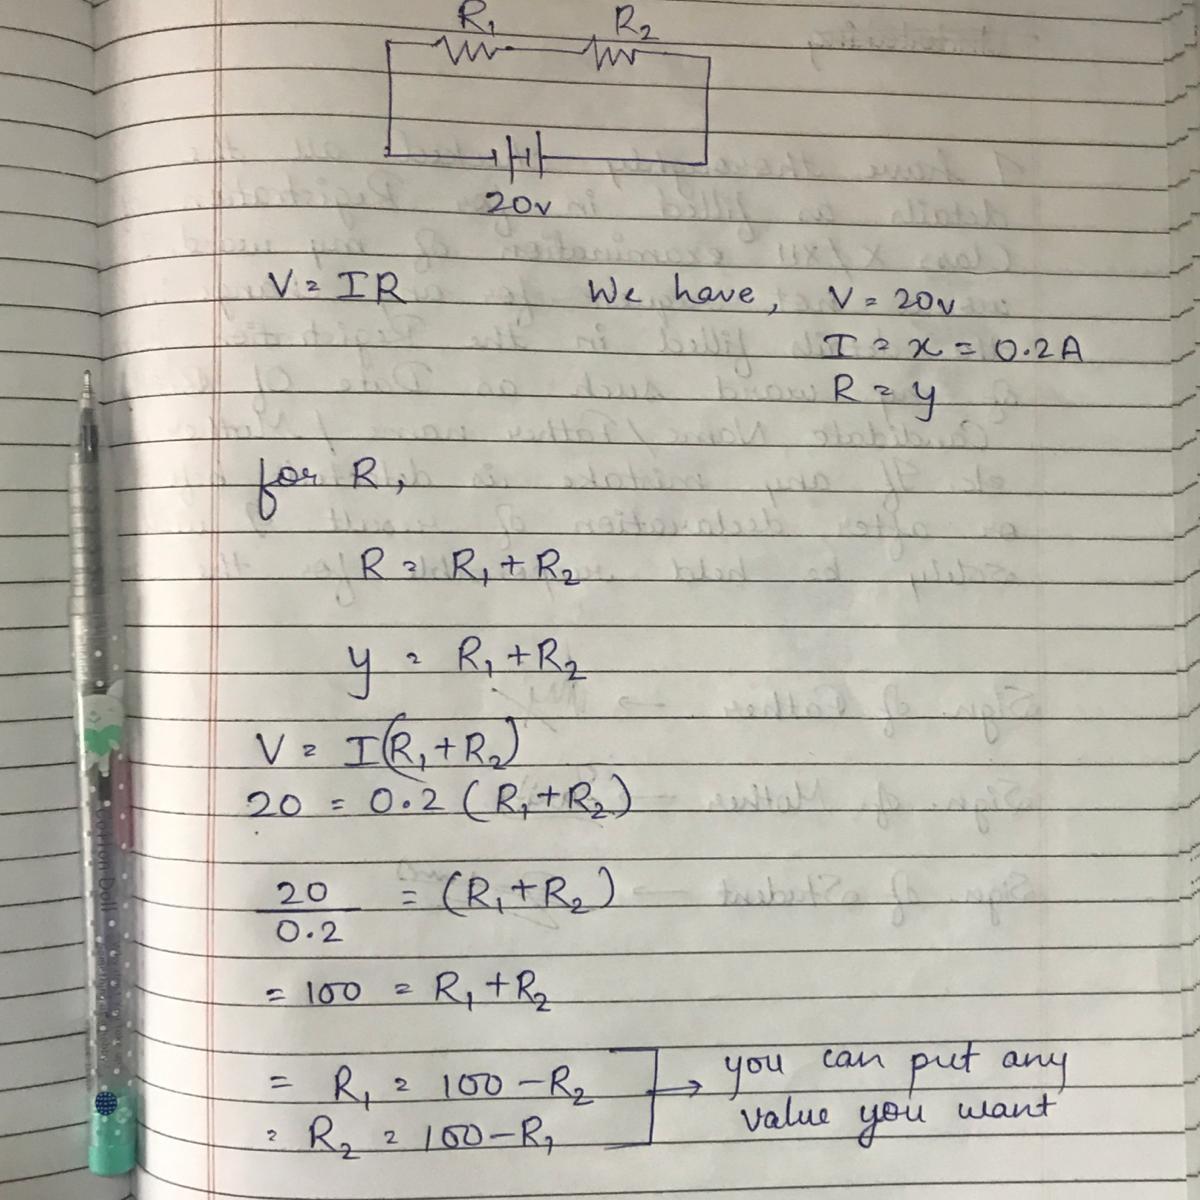 R₁ R₂
20v
V = IR We have, V = 20v
I = x = 0.2A
R = y
for R,
R = R₁ + R₂
y = R₁ + R₂
V = I(R₁ + R₂)
20 = 0.2 (R₁ + R₂)
20/0.2 = (R₁ + R₂)
= 100 = R₁ + R₂
= R₁ = 100 - R₂ → you can put any
= R₂ = 100 - R₁ value you want